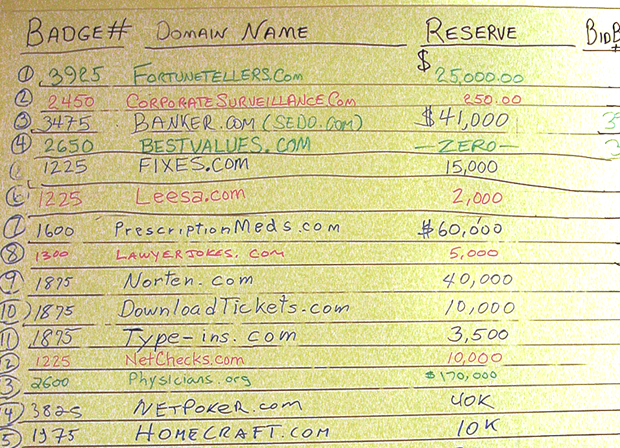 BADGE# DOMAIN NAME RESERVE
① 3985 FORTUNETELLERS.COM $25,000.00
② 2450 CORPORATESURVEILLANCE.COM 250.00
③ 3475 BANKER.COM (SEDO.COM) $41,000
④ 2650 BESTVALUES.COM —ZERO—
1225 FIXES.COM 15,000
1225 Leesa.com 2,000
⑦ 1600 PrescriptionMeds.com $60,000
⑧ 1300 LAWYERJOKES.COM 5,000
⑨ 1875 Norten.com 40,000
⑩ 1875 DownloadTickets.com 10,000
⑪ 1875 Type-ins.com 3,500
2 1225 NetChecks.com 10,000
3 2600 Physicians.org $170,000
4 3825 NETPOKER.COM 40K
5 1975 HOMECRAFT.COM 10K